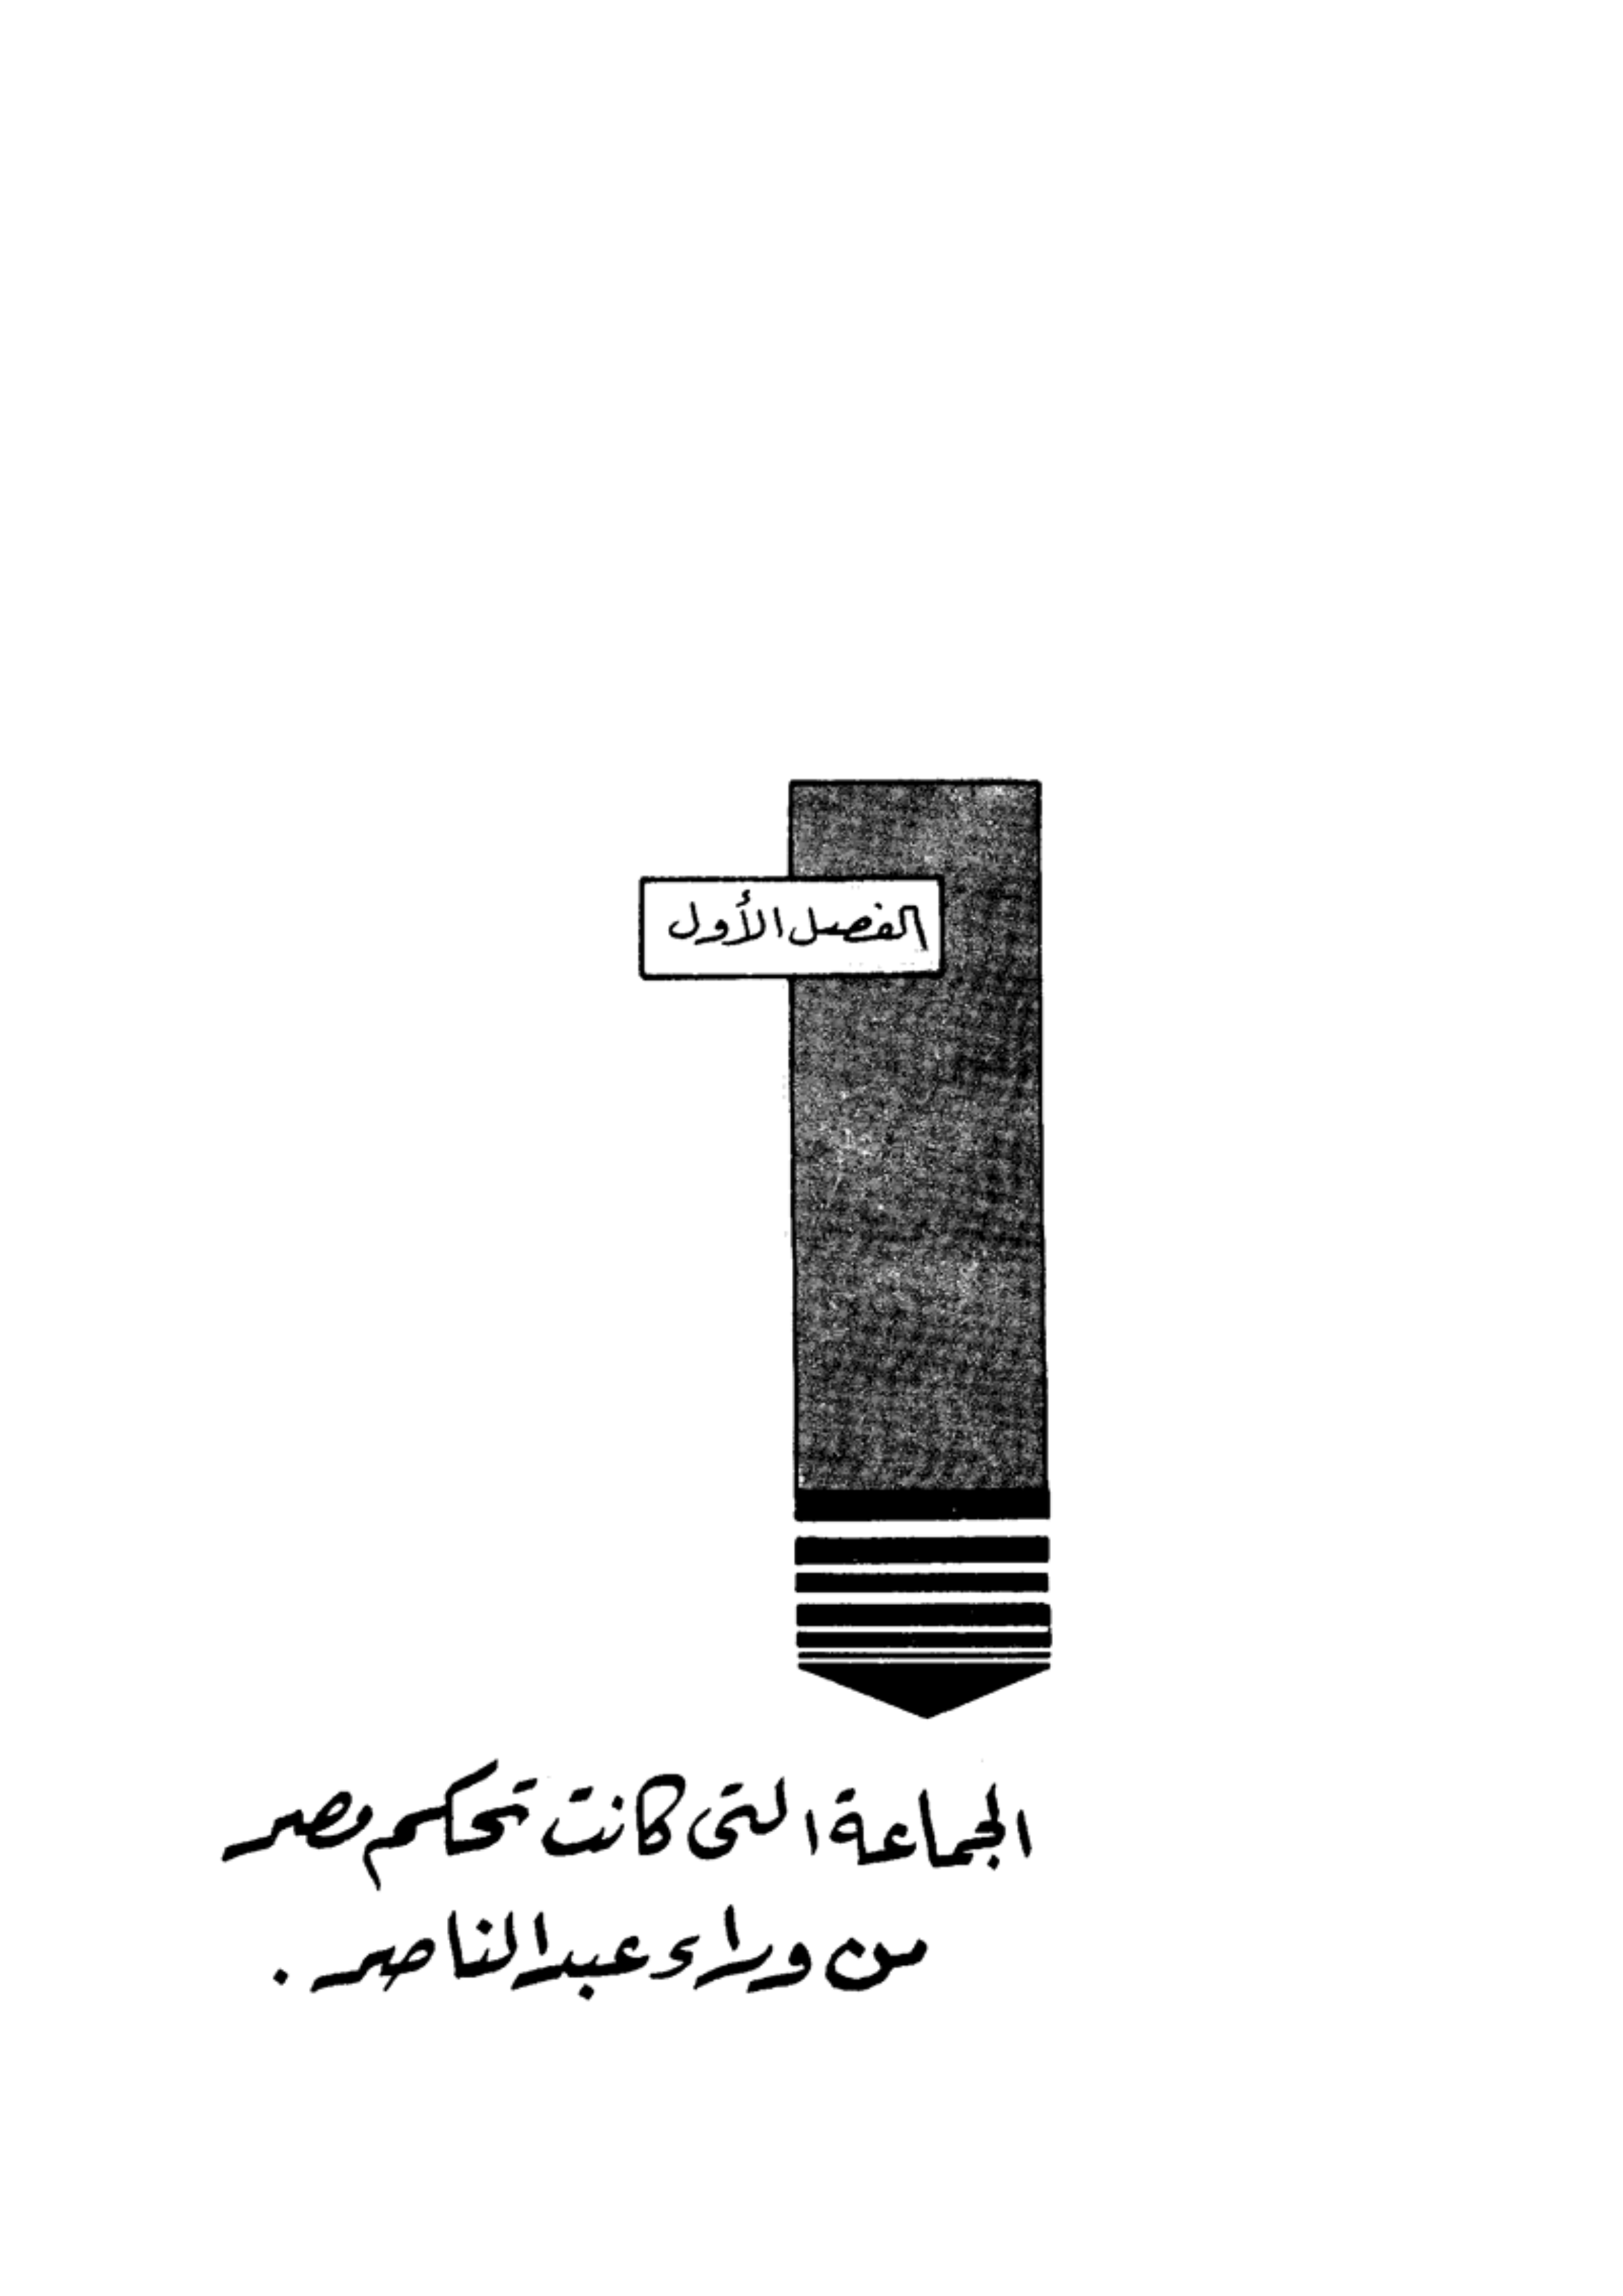 الفصل الأول
الجماعة التى كانت تحكم مصر
من وراء عبد الناصر .